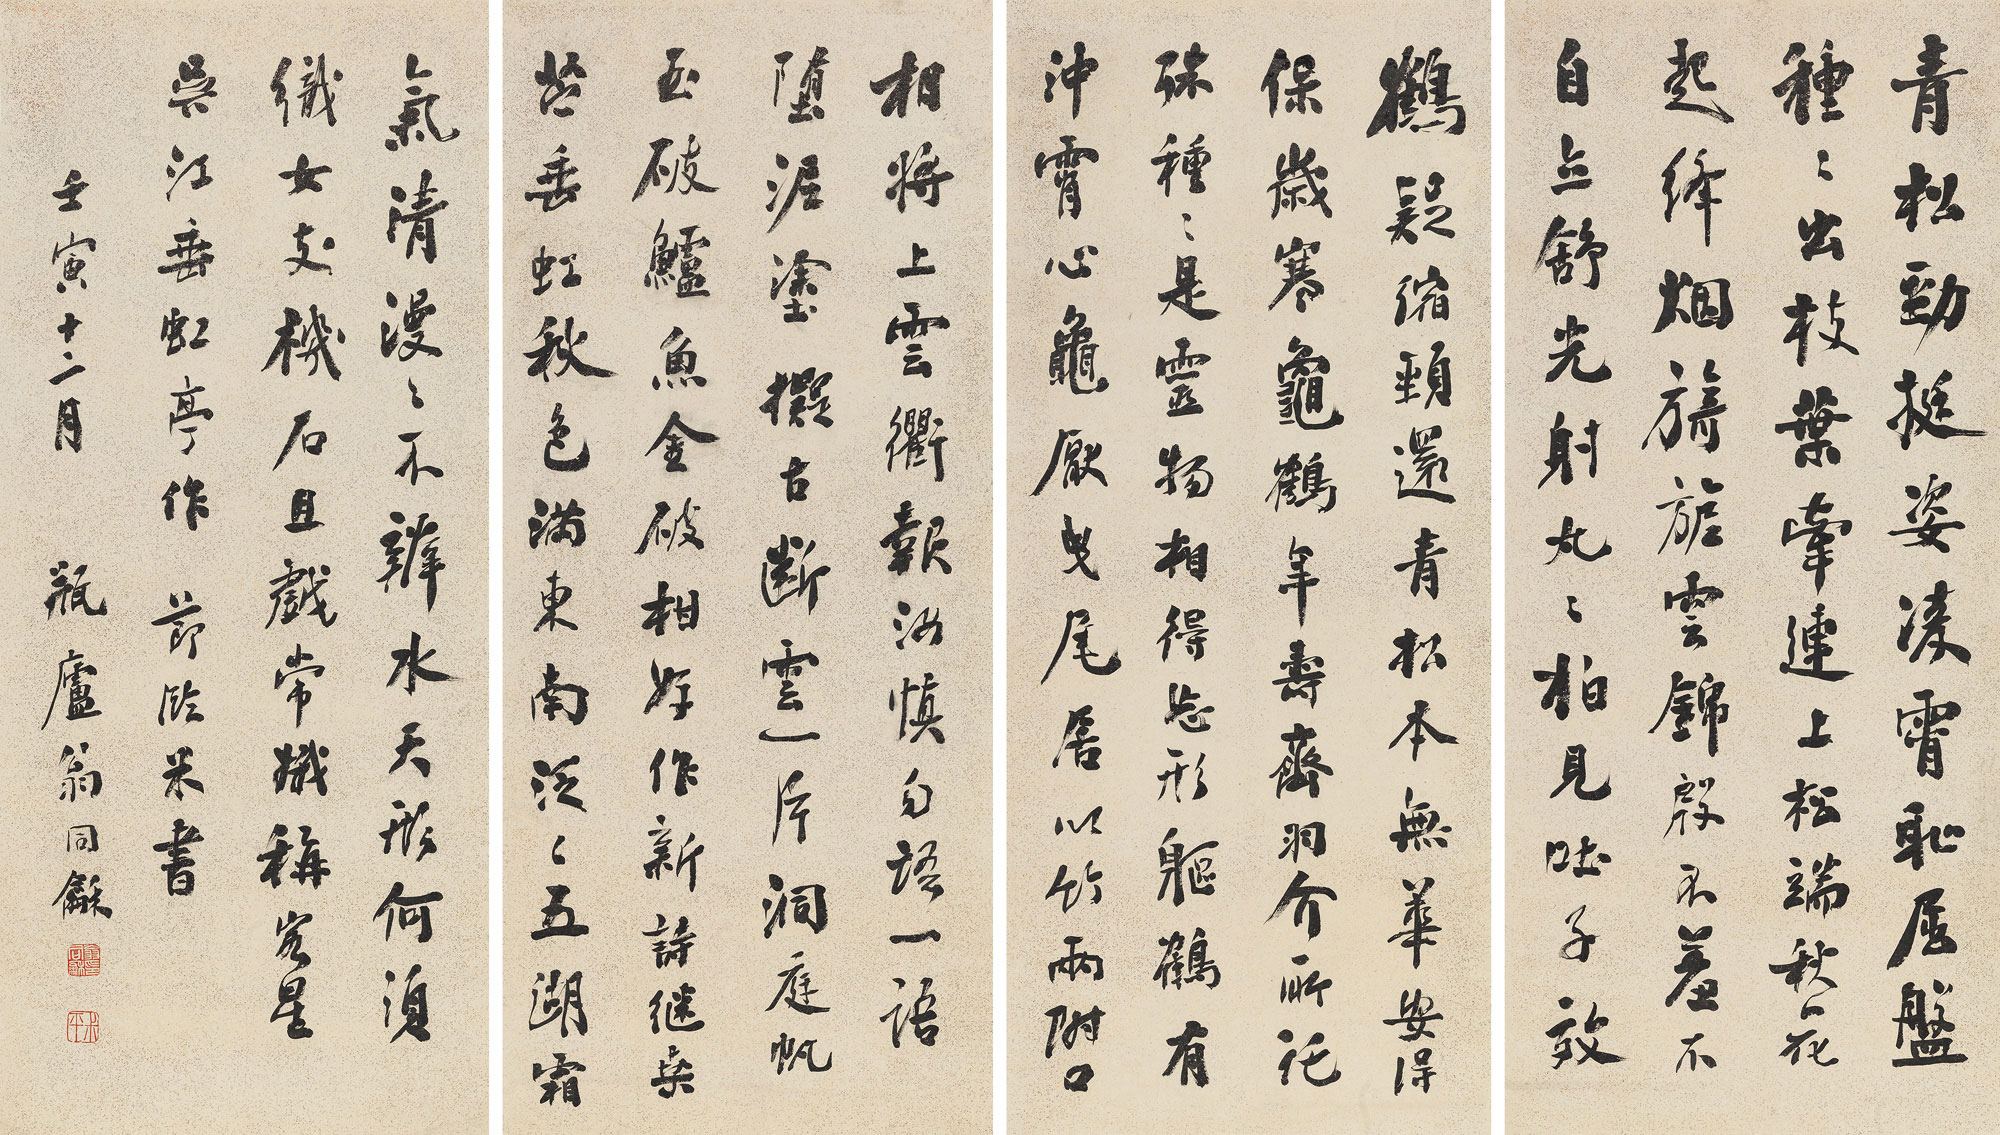 青松勁挺姿凌霄恥屈盤
種〻出枝葉牽連上松端秋花
起絳烟旖旎雲錦殷不羞不
自立舒光射丸〻柏見吐子效
鶴疑縮頸還青松本無華安得
保歲寒龜鶴年壽齊羽介所託
殊種〻是靈物相得忘形軀鶴有
沖霄心龜厭曳尾居以竹兩附口
相將上雲衢報汝慎勿語一語
墮泥塗擬古斷雲一片洞庭帆
玉破鱸魚金破柑好作新詩繼桑
苧垂虹秋色滿東南泛〻五湖霜
氣清漫〻不辨水天形何須
織女支機石且戲常娥稱客星
吳江垂虹亭作 節臨米書
壬寅十二月 瓶廬翁同龢